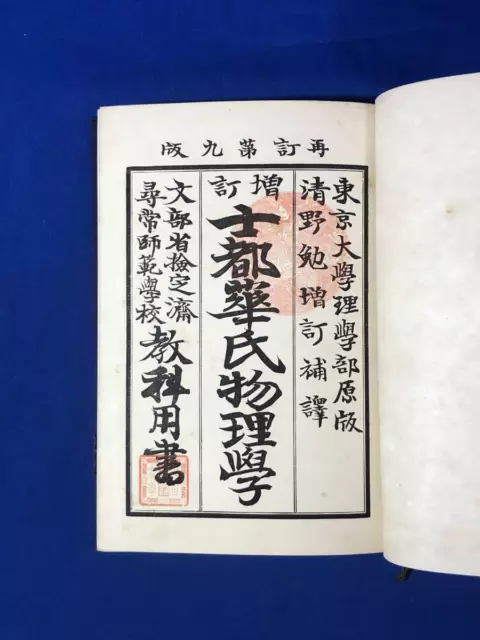 再訂第九版
東京大學理學部原版
清野勉增訂補譯
增訂
士都華氏物理學
文部省檢定濟
尋常師範學校
教科用書